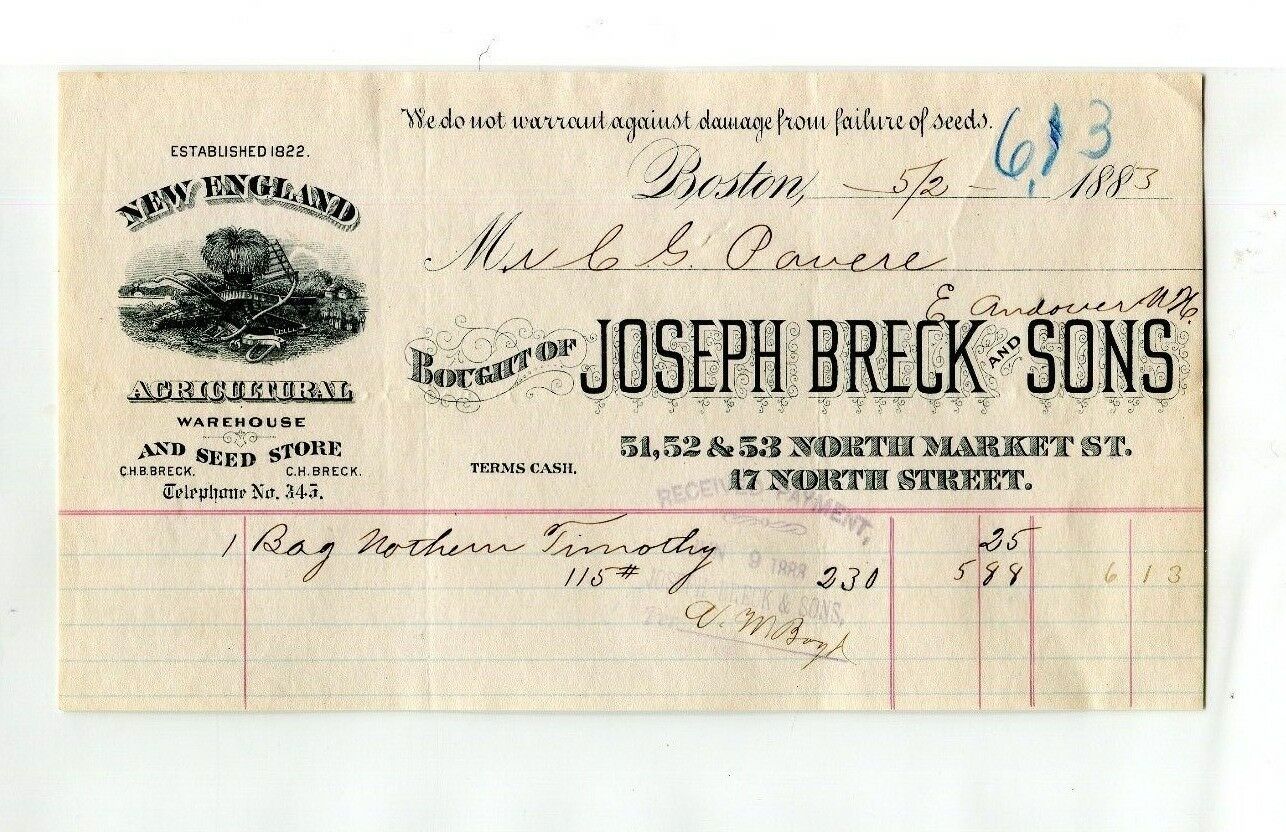 We do not warrant against damage from failure of seeds.
613
ESTABLISHED 1822.
Boston, 5/2 1883
NEW ENGLAND
Mr C. G. Pavere
E Andover N.H.
BOUGHT OF JOSEPH BRECK AND SONS
AGRICULTURAL
WAREHOUSE
AND SEED STORE
C.H.B. BRECK. C.H. BRECK.
Telephone No. 345.
TERMS CASH.
51, 52 & 53 NORTH MARKET ST.
17 NORTH STREET.
RECEIVED PAYMENT,
9 1883
JOSEPH BRECK & SONS,
1 Bag Nothern Timothy 25
115# 230 5 88 6 13